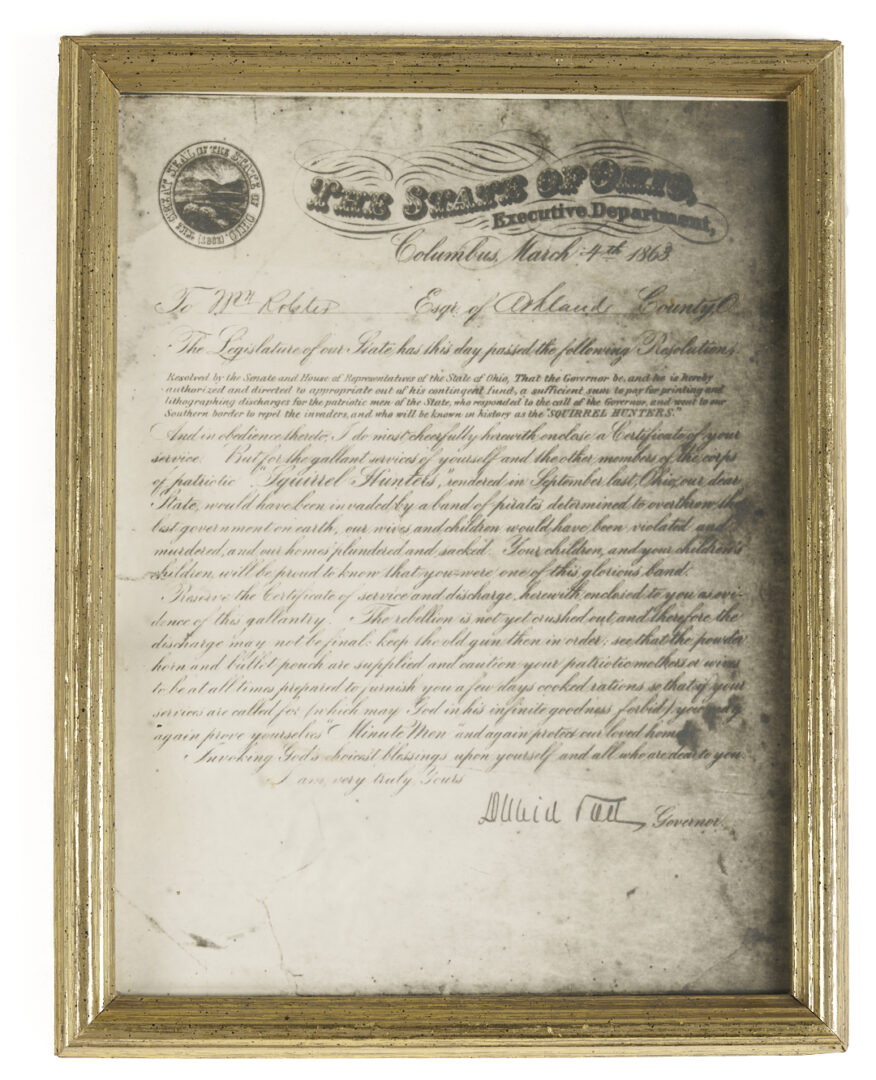 THE GREAT SEAL OF THE STATE OF OHIO.
THE STATE OF OHIO,
Executive Department,
Columbus, March 4th 1863
To Wm Esqr. of Ashland County, O
The Legislature of our State has this day passed the following Resolution,
Resolved by the Senate and House of Representatives of the State of Ohio, That the Governor be, and he is hereby
authorized and directed to appropriate out of his contingent fund, a sufficient sum to pay for printing and
lithographing discharges for the patriotic men of the State, who responded to the call of the Governor, and went to our
Southern border to repel the invaders, and who will be known in history as the "SQUIRREL HUNTERS."
And in obedience thereto, I do most cheerfully herewith enclose a Certificate of your
service. But for the gallant services of yourself and the other members of the corps
of patriotic "Squirrel Hunters," rendered in September last, Ohio, our dear
State, would have been invaded by a band of pirates determined to overthrow the
best government on earth, our wives and children would have been violated and
murdered, and our homes plundered and sacked. Your children, and your children's
children, will be proud to know that you were one of this glorious band.
Preserve the Certificate of service and discharge, herewith enclosed to you as evi-
dence of this gallantry. The rebellion is not yet crushed out and therefore the
discharge may not be final: keep the old gun then in order; see that the powder
horn and bullet pouch are supplied and caution your patriotic mothers or wives
to be at all times prepared to furnish you a few days cooked rations so that if your
services are called for (which may God in his infinite goodness forbid) you may
again prove yourselves "Minute Men" and again protect our loved homes.
Invoking God's choicest blessings upon yourself and all who are dear to you
I am, very truly, Yours
David Tod, Governor